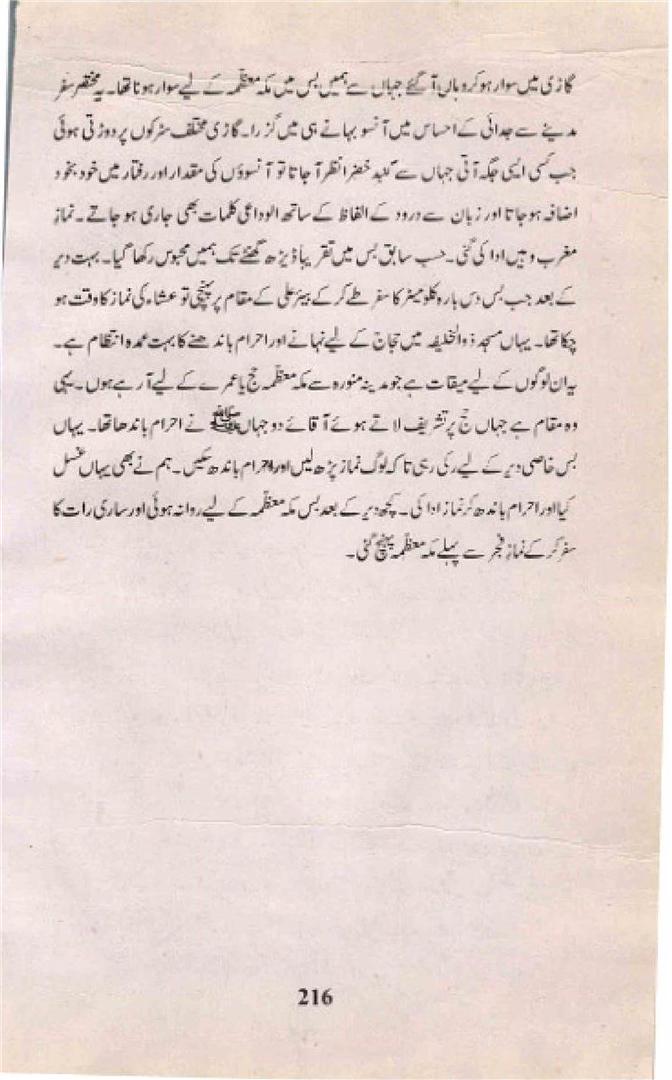 گاڑی میں سوار ہو کر وہاں آ گئے جہاں سے ہمیں بس میں مکہ معظّمہ کے لیے سوار ہونا تھا۔ یہ مختصر سفر
مدینے سے جدائی کے احساس میں آنسو بہانے ہی میں گزرا۔ گاڑی مختلف سڑکوں پر دوڑتی ہوئی
جب کسی ایسی جگہ آتی جہاں سے گنبد خضرا نظر آ جاتا تو آنسوؤں کی مقدار اور رفتار میں خود بخود
اضافہ ہو جاتا اور زبان سے درود کے الفاظ کے ساتھ الوداعی کلمات بھی جاری ہو جاتے۔ نمازِ
مغرب وہیں ادا کی گئی۔ حسب سابق بس میں تقریباً ڈیڑھ گھنٹے تک ہمیں محبوس رکھا گیا۔ بہت دیر
کے بعد جب بس دس بارہ کلومیٹر کا سفر طے کر کے بیئر علی کے مقام پر پہنچی تو عشاء کی نماز کا وقت ہو
چکا تھا۔ یہاں مسجد ذوالخلیفہ میں حجاج کے لیے نہانے اور احرام باندھنے کا بہت عمدہ انتظام ہے۔
یہ ان لوگوں کے لیے میقات ہے جو مدینہ منورہ سے مکہ معظّمہ حج یا عمرے کے لیے آ رہے ہوں۔ یہی
وہ مقام ہے جہاں حج پر تشریف لاتے ہوئے آقائے دو جہاں ﷺ نے احرام باندھا تھا۔ یہاں
بس خاصی دیر کے لیے رکی رہی تاکہ لوگ نماز پڑھ لیں اور احرام باندھ سکیں۔ ہم نے بھی یہاں غسل
کیا اور احرام باندھ کر نماز ادا کی۔ کچھ دیر کے بعد بس مکہ معظّمہ کے لیے روانہ ہوئی اور ساری رات کا
سفر کر کے نمازِ فجر سے پہلے مکہ معظّمہ پہنچ گئی۔
216